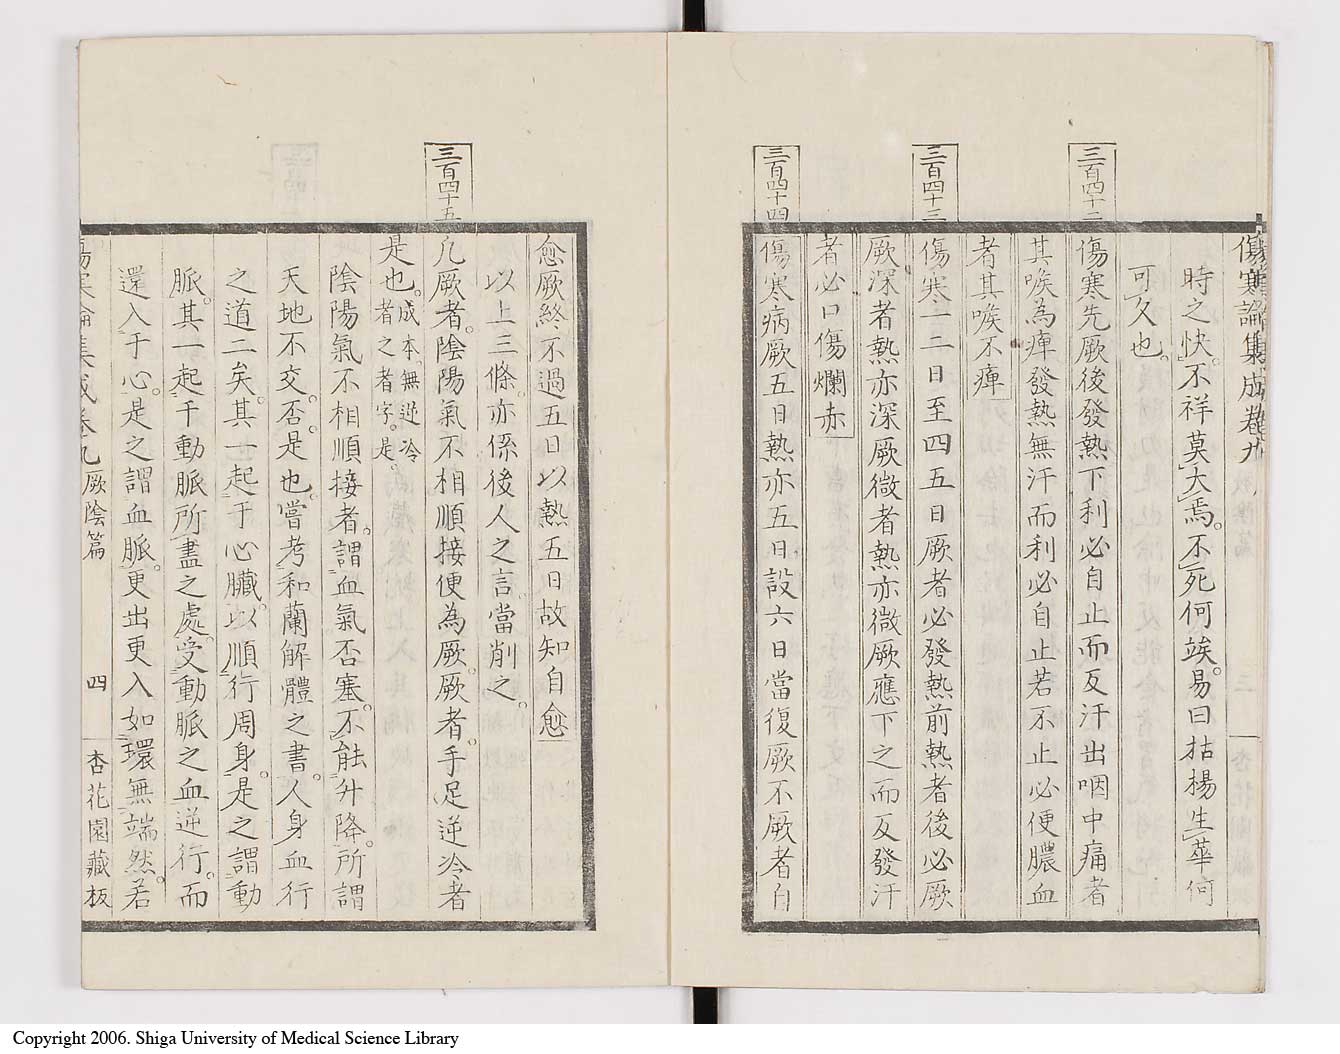 傷寒論集成卷九
時之快。不祥莫大焉。不死何竢。易曰枯楊生華何
可久也。
三百四十二
傷寒先厥後發熱下利必自止而反汗出咽中痛者
其喉為痺發熱無汗而利必自止若不止必便膿血
者其喉不痺
三百四十三
傷寒一二日至四五日厥者必發熱前熱者後必厥
厥深者熱亦深厥微者熱亦微厥應下之而反發汗
者必口傷爛赤
三百四十四
傷寒病厥五日熱亦五日設六日當復厥不厥者自
愈厥終不過五日以熱五日故知自愈
以上三條。亦係後人之言。當削之。
三百四十五
凡厥者。陰陽氣不相順接便為厥。厥者。手足逆冷者
是也。成本。無逆冷者之者字。是。
陰陽氣不相順接者。謂血氣否塞。不能升降。所謂
天地不交。否。是也。嘗考和蘭解體之書。人身血行
之道二矣。其一起于心臟。以順行周身。是之謂動
脈。其一起于動脈所盡之處。受動脈之血逆行。而
還入于心。是之謂血脈。更出更入如環無端然。若
傷寒論集成卷九 厥陰篇 四 杏花園藏板
Copyright 2006. Shiga University of Medical Science Library